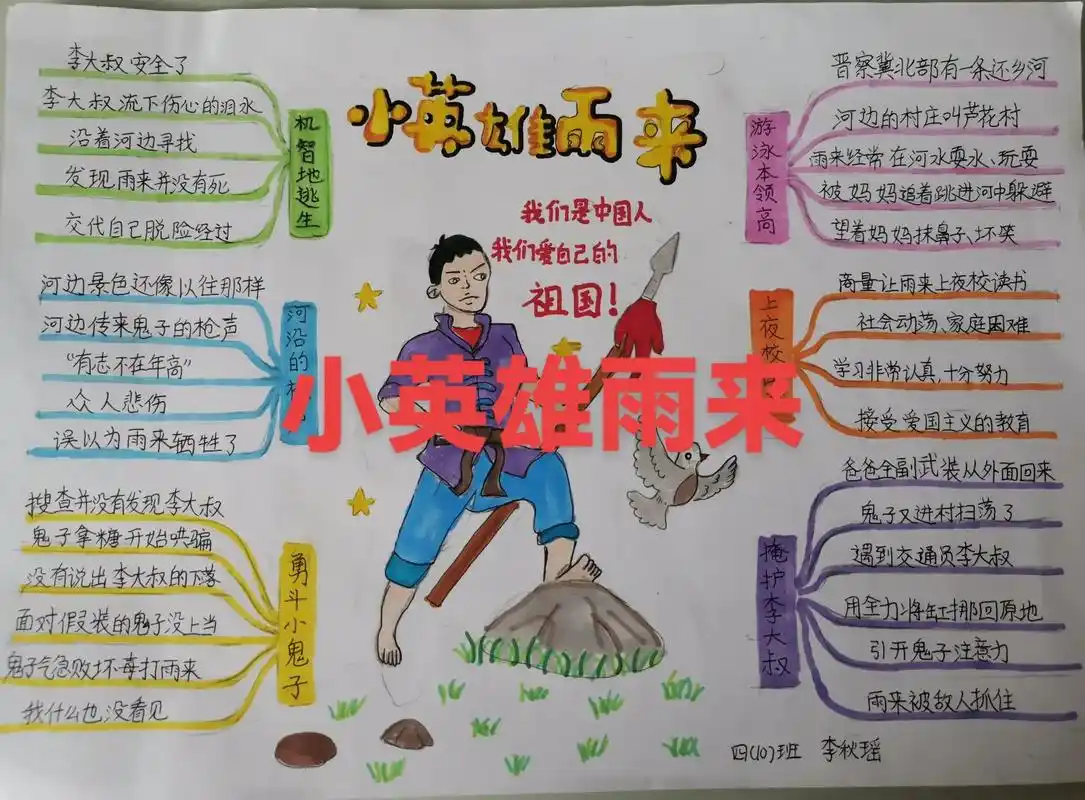 小英雄雨来
我们是中国人
我们爱自己的
祖国！
小英雄雨来
游泳本领高
晋察冀北部有一条还乡河
河边的村庄叫芦花村
雨来经常在河水耍水、玩耍
被妈妈追着跳进河中躲避
望着妈妈抹鼻子、坏笑
上夜校
商量让雨来上夜校读书
社会动荡、家庭困难
学习非常认真,十分努力
接受爱国主义的教育
掩护李大叔
爸爸全副武装从外面回来
鬼子又进村扫荡了
遇到交通员李大叔
用全力将缸挪回原地
引开鬼子注意力
雨来被敌人抓住
勇斗小鬼子
搜查并没有发现李大叔
鬼子拿糖开始哄骗
没有说出李大叔的下落
面对假装的鬼子没上当
鬼子气急败坏毒打雨来
我什么也没看见
河沿的
河边景色还像以往那样
河边传来鬼子的枪声
“有志不在年高”
众人悲伤
误以为雨来牺牲了
机智地逃生
李大叔安全了
李大叔流下伤心的泪水
沿着河边寻找
发现雨来并没有死
交代自己脱险经过
四(10)班 李秋瑶